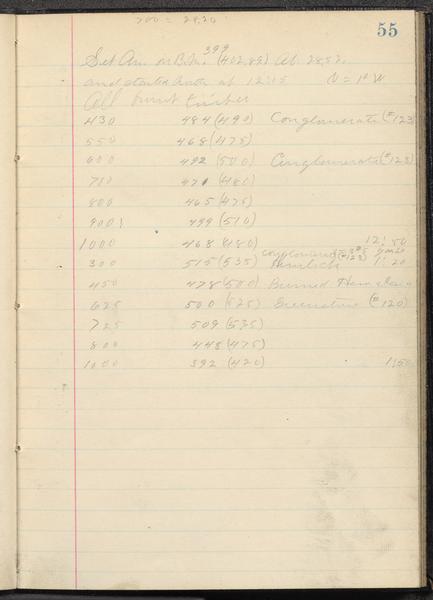 700 = 28.20
55
399
Set An. on B.M. (402.89) At 28.52
and started South at 12:15 V = 1° W
All burnt timber
430 484 (490) Conglomerate (#123)
550 468 (475)
600 492 (500) Conglomerate (#123)
700 471 (480)
800 465 (475)
900 499 (510)
1000 468 (480) 12:50
300 515 (535) Conglomerate (#123) 1:20
Hemlock
450 478 (500) Burned Hemlock
625 500 (525) Greenstone (#120)
725 509 (535)
800 448 (475)
1000 392 (420) 1:50